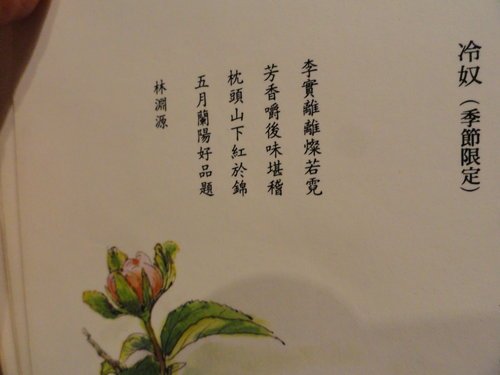 冷奴（季節限定）
李實離離燦若霓
芳香嚼後味堪稽
枕頭山下紅於錦
五月蘭陽好品題
林淵源